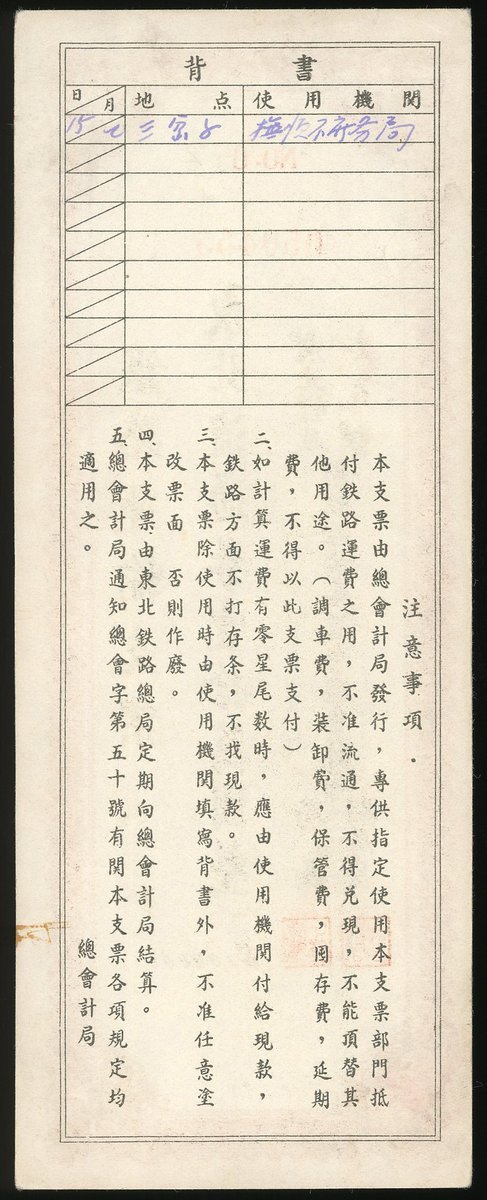 背書
日 月 地点 使用機關
15 七 三
注意事項.
本支票由總會計局發行，專供指定使用本支票部門抵
付鉄路運費之用，不准流通，不得兑現，不能頂替其
他用途。(調車費，裝卸費，保管費，囤存費，延期
費，不得以此支票支付)
二、如計算運費有零星尾数時，應由使用機関付給現款，
鉄路方面不打存条，不找現款。
三、本支票除使用時由使用機関填寫背書外，不准任意塗
改票面 否則作廢。
四、本支票由東北鉄路總局定期向總會計局結算。
五、總會計局通知總會字第五十號有関本支票各項規定均
適用之。
總會計局